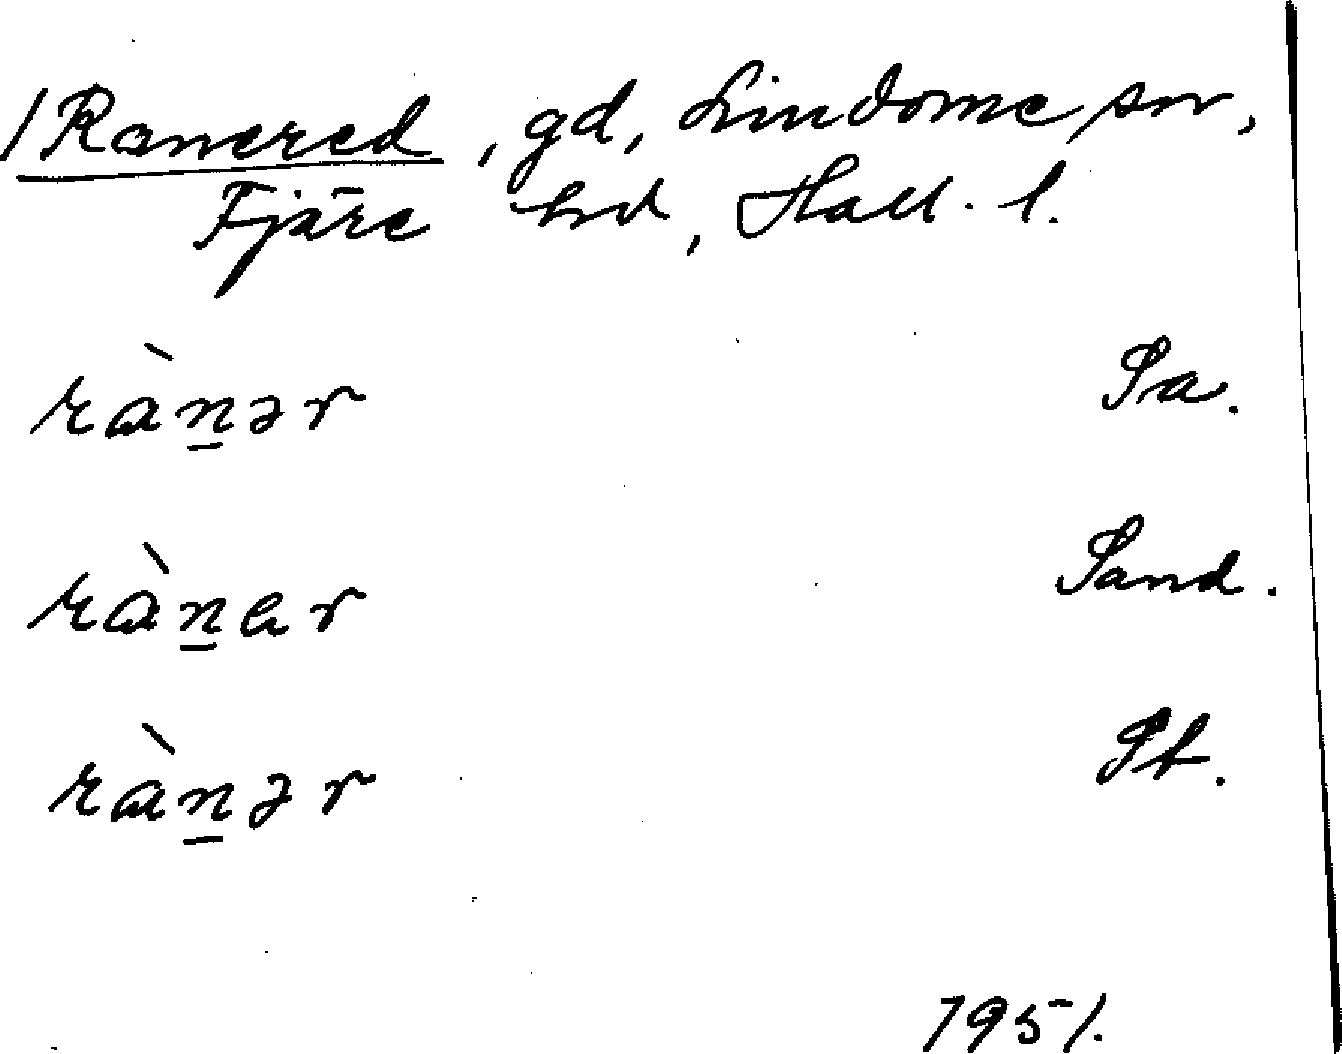 /Ranered, gd, Lindome sn,
Fjäre hd, Hall. l.
ràn̲ər Sa.
ràn̲ar Sand.
ràn̲ər St.
1951.